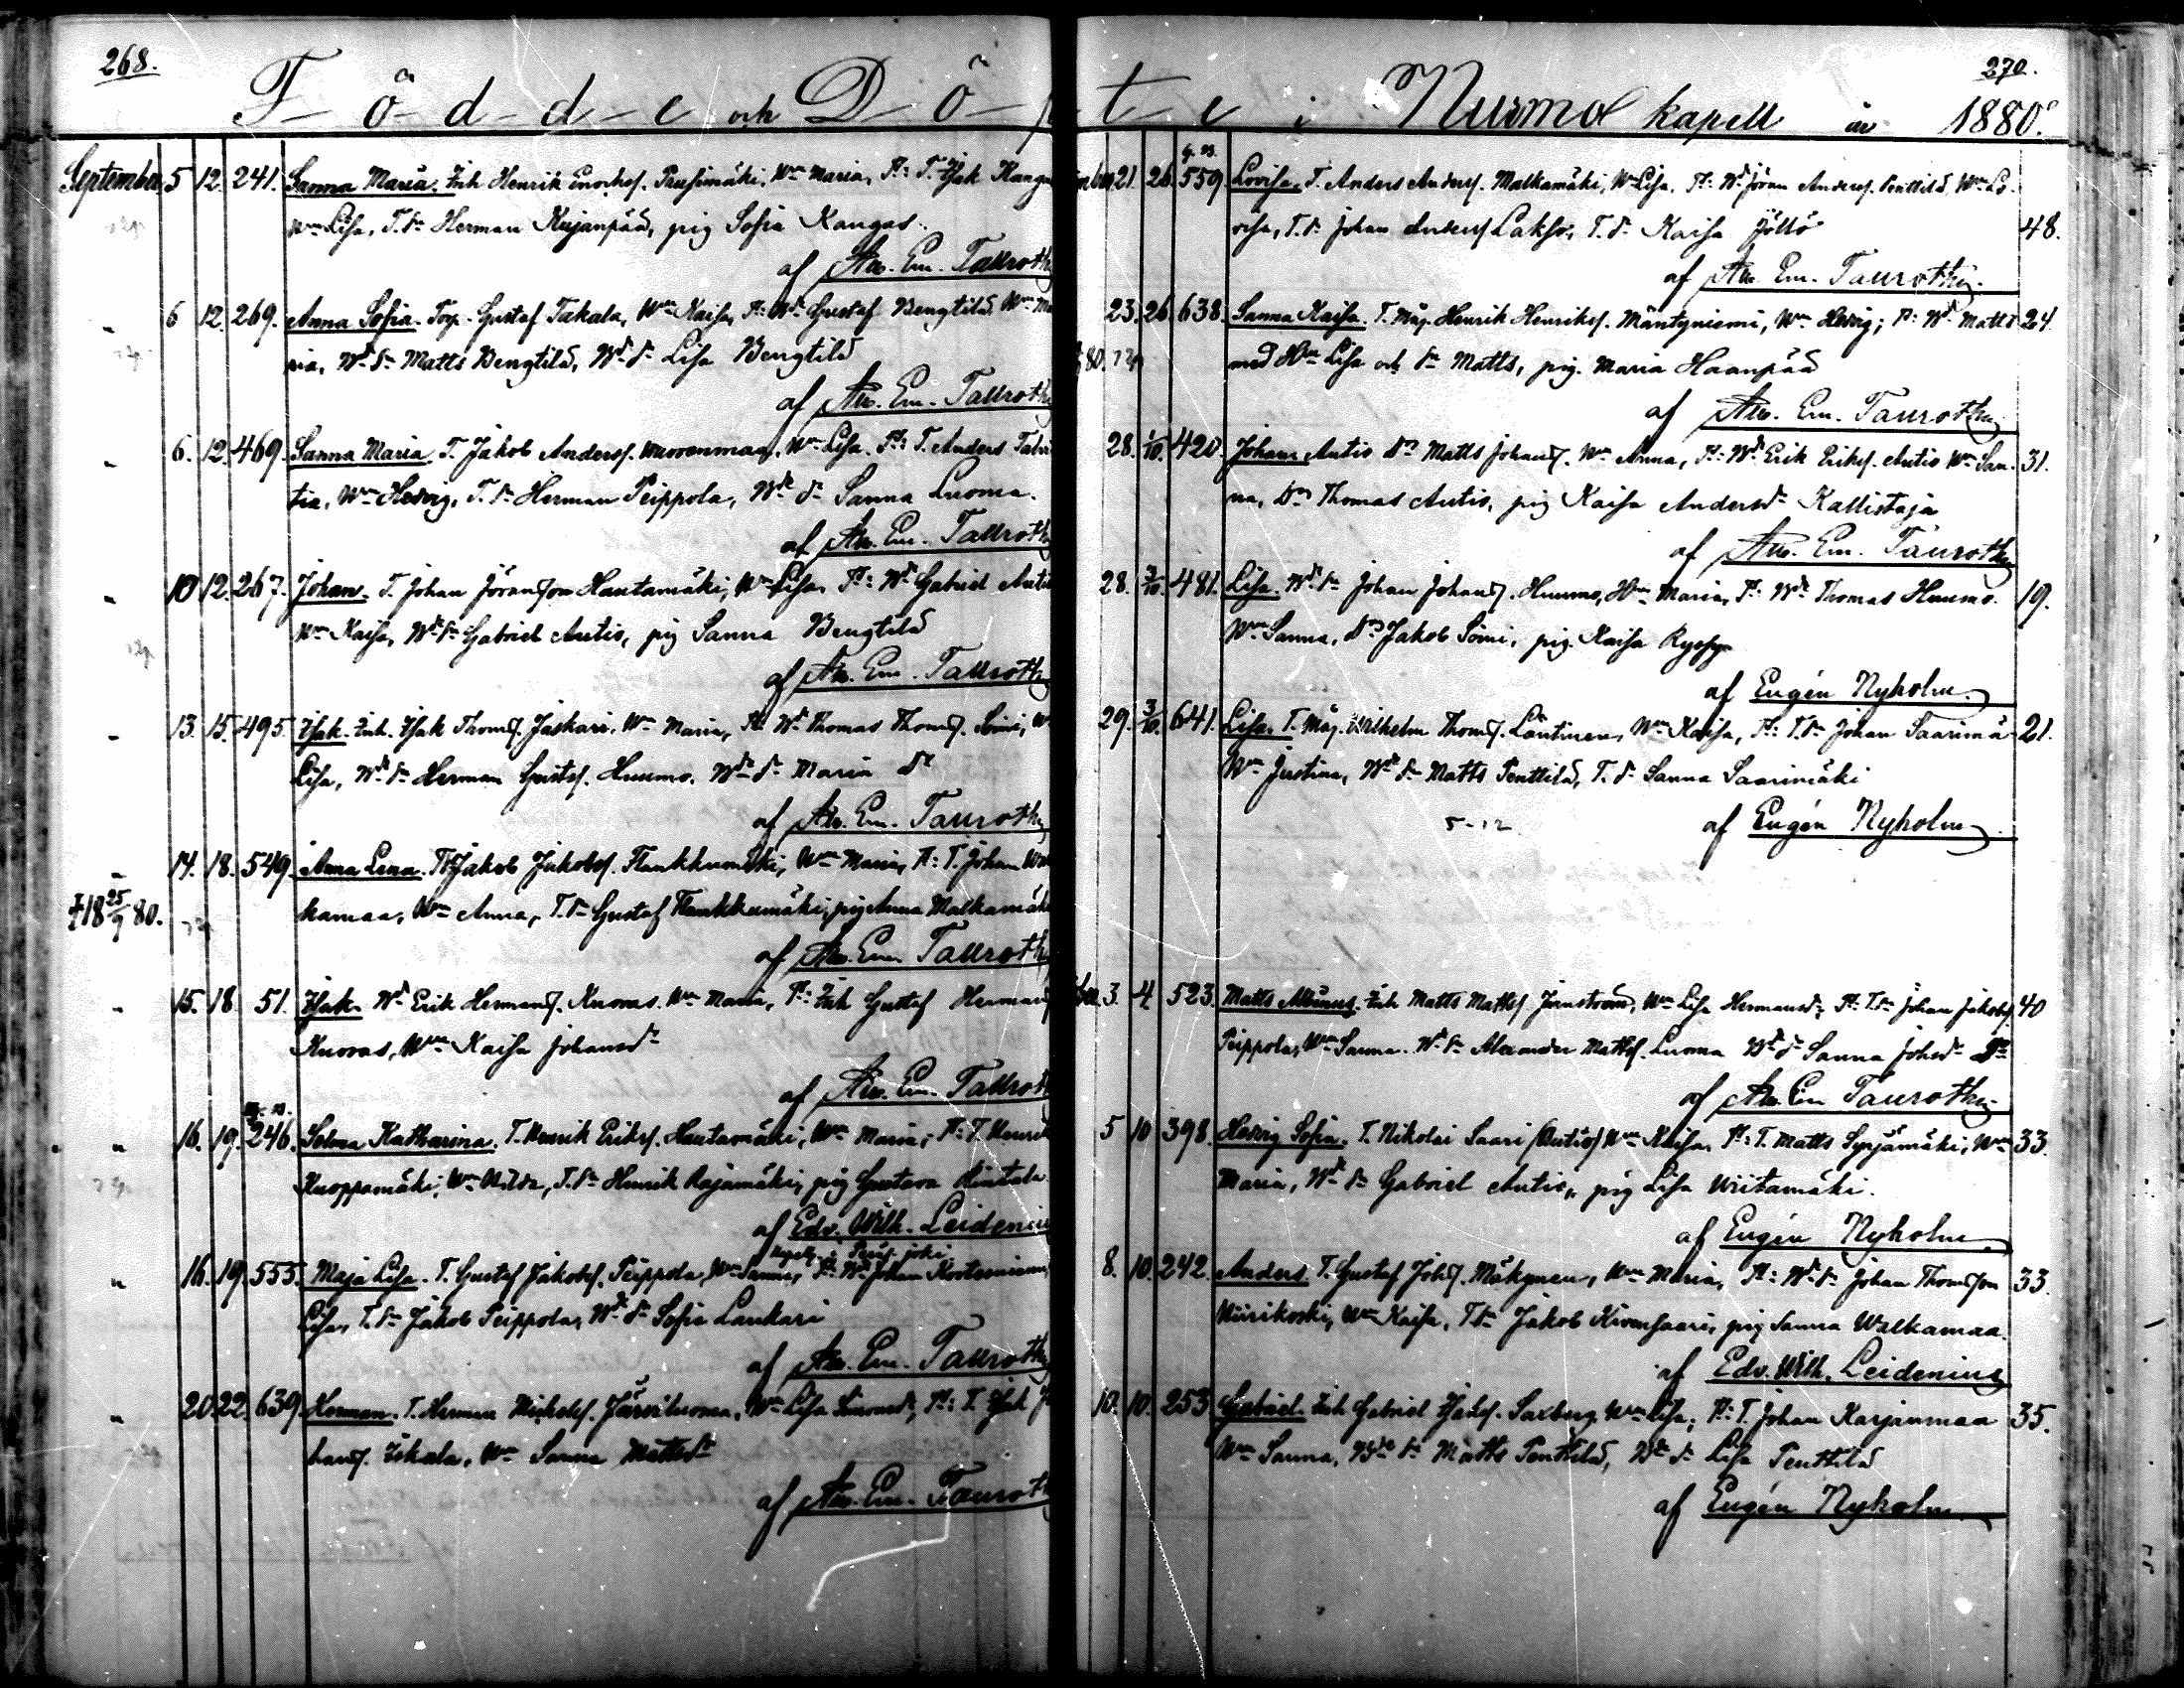 268.
Födde och Dö
September 5 12. 241. Sanna Maria. Inh Henrik Enochss. Wn Maria, Ft: T. Isak
Wn Lisa, T.Sn Herman Kujanpää, pig Sofia Kangas.
af Alex. Em. Tauroth
" 6 12. 269. Anna Sofia. Torp. Gustaf Takala, Wn Kaisa, Ft: Wd Gustaf Bengtilä Wn Ma
ria, Wd Sn Matts Bengtilä, Wd dr Lisa Bengtilä
af Alex. Em. Tauroth
" 6. 12. 469. Sanna Maria. T. Jakob Anderss. Wn Lisa. Ft: T. Anders
tia, Wn Hedvig, T. Sn Herman Peippola, Wd dr Sanna Luoma.
af Alex. Em. Tauroth
" 10 12. 267. Johan. T. Johan Jöransson Hautamäki, Wn Lisa, Ft: Wd Gabriel
Wn Kaisa, Wd Sn Gabriel Autio, pig Sanna Bengtilä
af Alex. Em. Tauroth
" 13. 15. 495. Isak. Inh. Isak Thomss. Jaskari, Wn Maria, Ft: Wd Thomas Thomss. Soini, W
Lisa, Wd Sn Herman Gustfs. Huumo. Wd dr Maria Do
af Alex. Em. Tauroth
" 14. 18. 549. Anna Lena. T. Jakob Jakobss. Flankkumäki, Wn Maria, Ft: T. Johan Wal
kamaa, Wn Anna, T. Sn Gustaf Flankkumäki, pig Anna Malkamäki
af Alex. Em. Tauroth
†18 25/9 80.
" 15. 18 51. Isak. Wd Erik Hermanss. Kuoras. Wn Maria, Ft: Inh Gustaf Hermanss
Kuoras, Wn Kaisa Johansdr
af Alex. Em. Tauroth
" 16. 19. 246. Selma Katharina. T. Henrik Erikss. Hautamäki, Wn Maria, Ft: T. Henrik
Knoppamäki, Wn Hilda, T. Sn Henrik Rajamäki, pig Gustava Rintala
af Edv. Wilh. Leidenius
" 16. 19. 555. Maja Lisa. T. Gustaf Jakobss. Peippola, Wn Sanna, Ft: Wd Johan Kortesniemi
Lisa, T. Sn Jakob Peippola, Wd dr Sofia Laukari
af Alex. Em. Tauroth
" 20. 22. 639. Herman. T. Herman Mickelss. Järviluoma, Wn Lisa Simonsdr, Ft: T. Isak Jo
hanss. Iskala, Wn Sanna Mattsdr
af Alex. Em. Tauroth
270.
te i Nurmo kapell år 1880.
21. 26. 559 Lovisa. T. Anders Anderss. Malkamäki, Wn Lisa, Ft: Wd Jöran Anderss. Penttilä, Wn Lo
visa, T. Sn Johan Anderss Lakso, T. dr Kaisa Jöllö 48.
af Alex. Em. Tauroth
23. 26. 638. Sanna Kaisa. T. Måg. Henrik Henrikss. Mäntyniemi, Wn Hedvig; Ft: Wd Matts 24.
med Hn Lisa och Sn Matts, pig. Maria Haanpää
af Alex. Em. Tauroth
28. 1/10. 420. Johan. Autio Dr Matts Johanss. Wn Anna, Ft: Wd Erik Erikss. Autio Wn San 31.
na, Dr Thomas Autio, pig Kaisa Andersdr Kallistaja
af Alex. Em. Tauroth
28. 3/10. 481. Lisa. Wd Sn Johan Johanss. Huumo, Hn Maria, Ft: Wd Thomas Huumo. 19.
Wn Sanna, Dr Jakob Soini, pig. Kaisa
af Eugén Nyholm.
29. 3/10. 641. Lisa. T. Måg. Wilhelm Thomss. Läntinen, Wn Kaisa, Ft: T. Sn Johan Saarimä 21.
Wn Justina, Wd Sn Matts Penttilä, T. dr Sanna Saarimäki
5-12
af Eugén Nyholm
3. 4. 523. Matts Albinus. Inh Matts Mattss. Jernström, Wn Lisa Hermansdr, Ft: T. Sn Johan Jakobss. 40
Peippola, Wn Sanna. Wd Sn Alexander Mattss. Luoma Wd dr Sanna Johsdr Do
af Alex. Em Tauroth
5 10 398. Hedvig Sofia. T. Nikolai Saari (Autio) Wn Kaisa. Ft: T. Matts Syrjämäki, Wn 33.
Maria, Wd Sn Gabriel Autio, pig Lisa Wiitamäki.
af Eugén Nyholm
8. 10. 242. Anders. T. Gustaf Johss. Mäkynen, Wn Maria, Ft: Wd Sn Johan Thomsson 33.
Niirikoski, Wn Kaisa, T Sn Jakob Kivensaari, pig Sanna Walkamaa.
af Edv. Wilh. Leidenius
10. 10. 253 Gabriel. Inh Gabriel Isakss. Saxberg Wn Lisa, Ft: T. Johan Karjanmaa 35.
Wn Sanna, Wd Sn Matts Penttilä, Wd dr Lisa Penttilä
af Eugén Nyholm